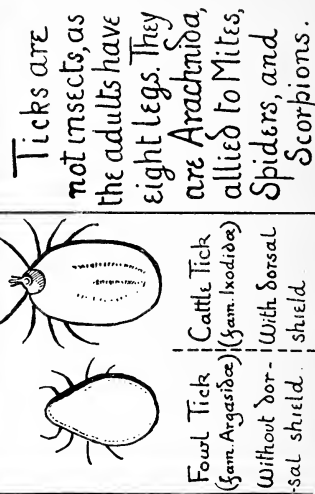 Ticks are
not insects, as
the adults have
eight legs. They
are Arachnida,
allied to Mites,
Spiders, and
Scorpions.
Cattle Tick
(fam. Ixodidæ)
With dorsal
shield
Fowl Tick
(fam. Argasidæ)
Without dor-
-sal shield.